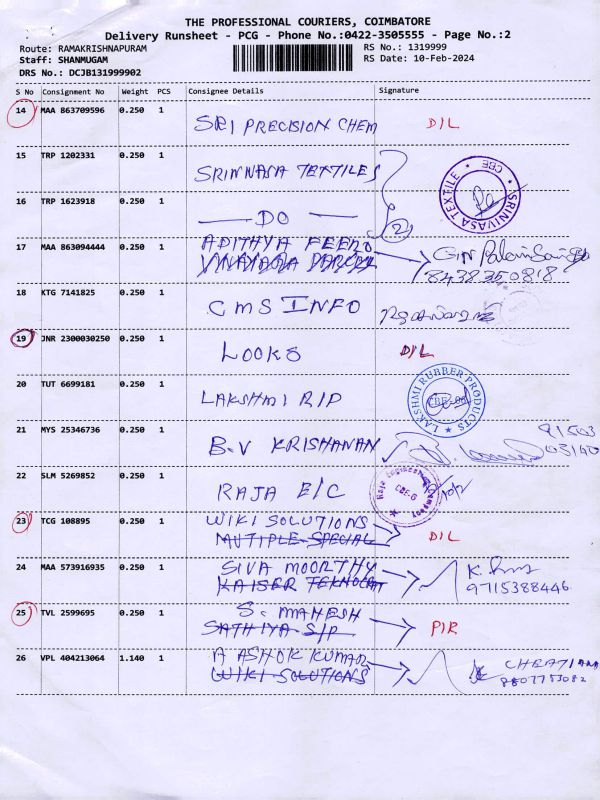 THE PROFESSIONAL COURIERS, COIMBATORE
Delivery Runsheet - PCG - Phone No.:0422-3505555 - Page No.:2
Route: RAMAKRISHNAPURAM RS No.: 1319999
Staff: SHANMUGAM RS Date: 10-Feb-2024
DRS No.: DCJB131999902
S No Consignment No Weight PCS Consignee Details Signature
14 MAA 863709596 0.250 1 SRI PRECISION CHEM D/L
15 TRP 1202331 0.250 1 SRINIVASA TEXTILES
SRINIVASA TEXTILE CBE
16 TRP 1623918 0.250 1 — DO — 2
17 MAA 863094444 0.250 1 ADITHYA FEEDS
8438350818
18 KTG 7141825 0.250 1 CMS INFO
19 JNR 2300030250 0.250 1 LOOKS D/L
20 TUT 6699181 0.250 1 LAKSHMI R/P
LAKSHMI RUBBER PRODUCTS
21 MYS 25346736 0.250 1 B.V KRISHANAN
22 SLM 5269852 0.250 1 RAJA E/C
23 TCG 108895 0.250 1 WIKI SOLUTIONS D/L
MUTIPLE SPECIAL
24 MAA 573916935 0.250 1 SIVA MOORTHY
KAISER 9715388446
25 TVL 2599695 0.250 1 S. MAHESH
SATHIYA S/P P/R
26 VPL 404213064 1.140 1 A ASHOK KUMAR
WIKI SOLUTIONS